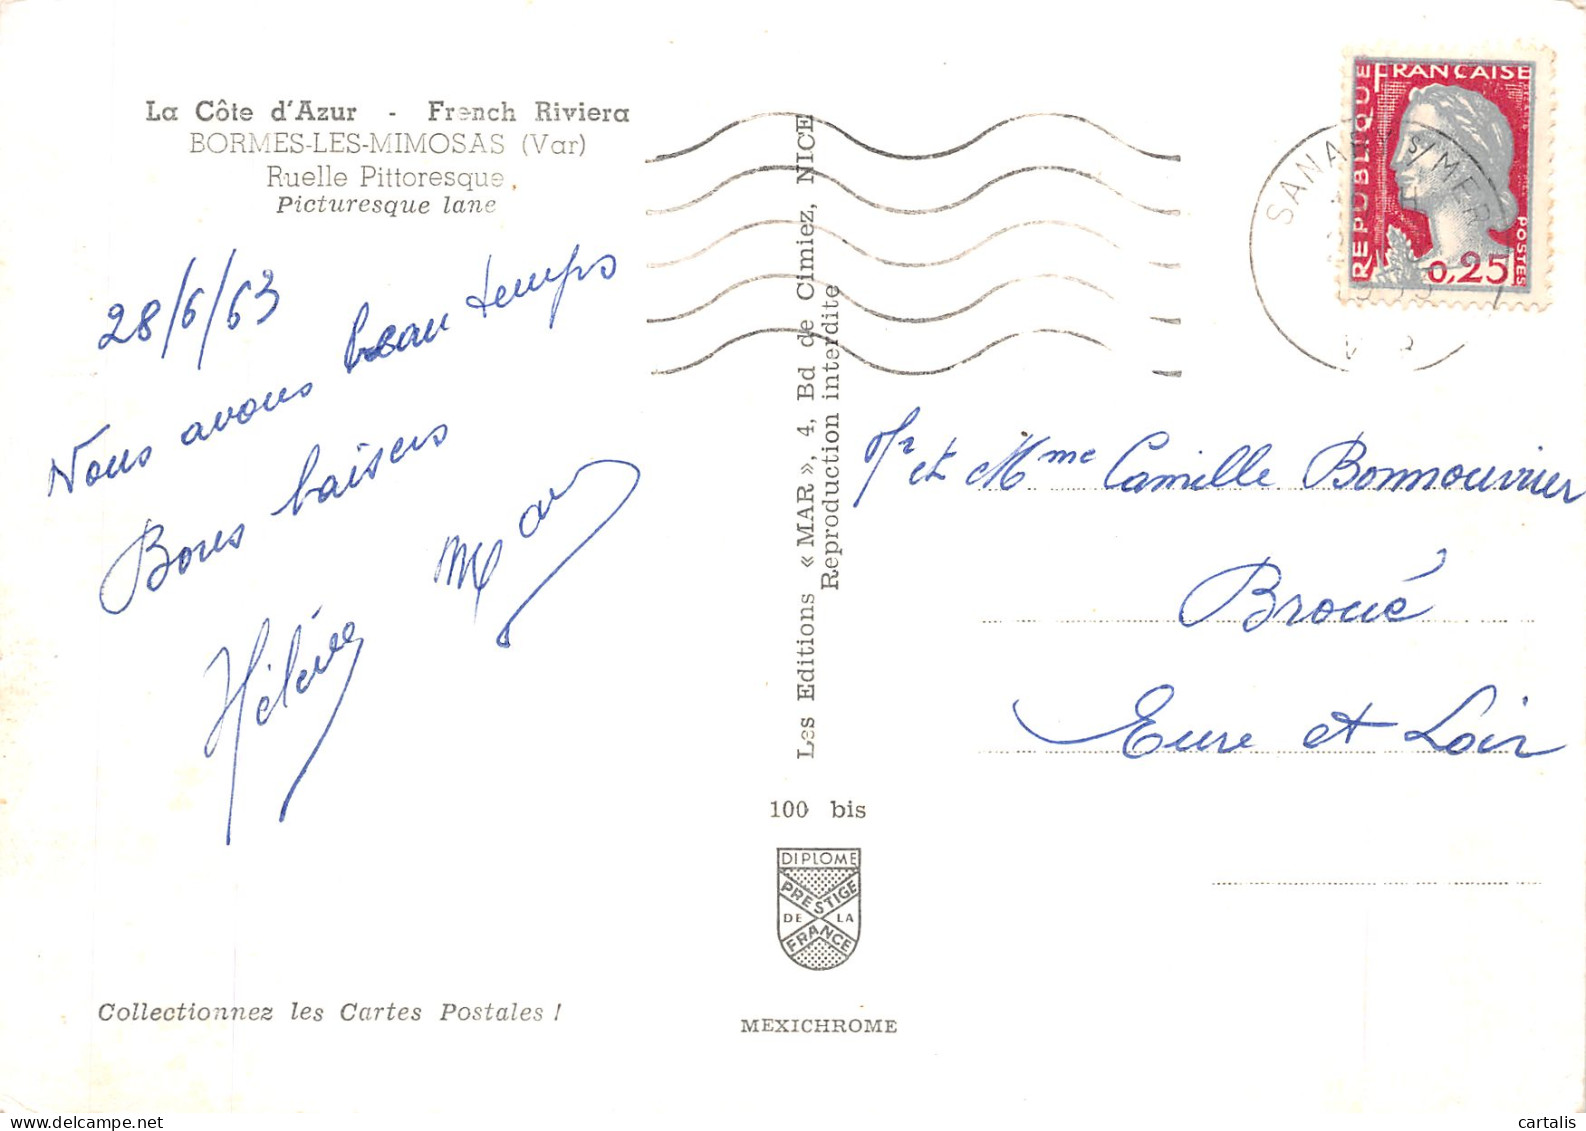 La Côte d'Azur - French Riviera
BORMES-LES-MIMOSAS (Var)
Ruelle Pittoresque
Picturesque lane
28/6/63
Nous avons beau temps
Bons baisers
Hélène
Les Editions « MAR », 4, Bd de Cimiez, NICE
Reproduction interdite
100 bis
DIPLOME
PRESTIGE
DE LA
FRANCE
MEXICHROME
Collectionnez les Cartes Postales !
REPUBLIQUE FRANCAISE
POSTES
0,25
SANARY s/MER
Mr et Mme Camille Bonnouvrier
Broué
Eure et Loir
cartalis